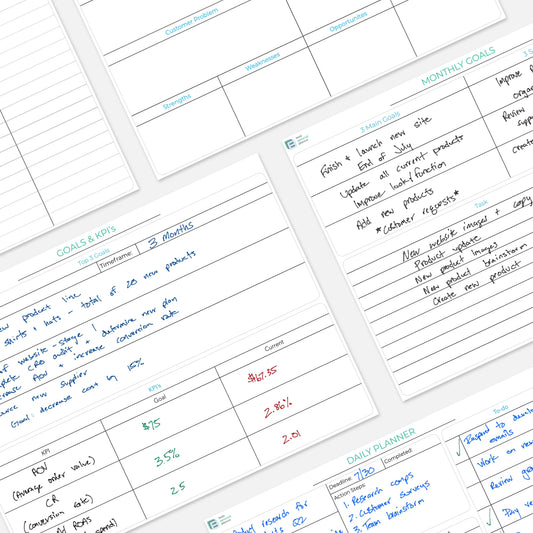 Customer Problem
Strengths
Weaknesses
Opportunites
MONTHLY GOALS
3 Main Goals
Finish & launch new site
End of July
Update all current products
Improve look/function
Add new products
*customer requests*
Improve
Review
create
Task
New website images + copy
Product update
New product images
New product brainstorm
Create new product
GOALS & KPI's
Top 3 Goals
Timeframe:
3 Months
product line
shirts + hats - total of 20 new products
website - stage 1
CRO audit + determine new plan
AOV + increase conversion rate
new supplier
Goal: decrease cost by 15%
KPI's
KPI
Goal
Current
AOV
(Average order value)
$75
$67.35
CR
(conversion rate)
3.5%
2.86%
ROAS
2.5
2.01
DAILY PLANNER
Deadline:
7/30
Completed:
Action Steps:
1. Research comps
2. Customer surveys
3. Team brainstorm
research for
Q2
To-do
Respond to
emails
Work on new
Review
Pay